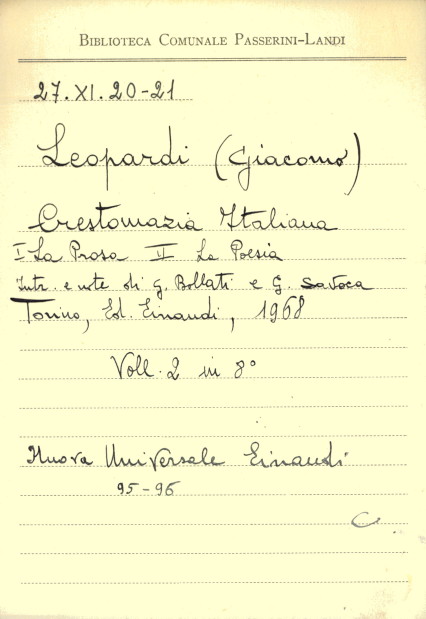 BIBLIOTECA COMUNALE PASSERINI-LANDI
27.XI.20-21
Leopardi (Giacomo)
Crestomazia Italiana
I La Prosa II La Poesia
Intr. e note di G. Bollati e G. Savoca
Torino, Ed. Einaudi, 1968
Voll. 2 in 8°
Nuova Universale Einaudi
95-96
C